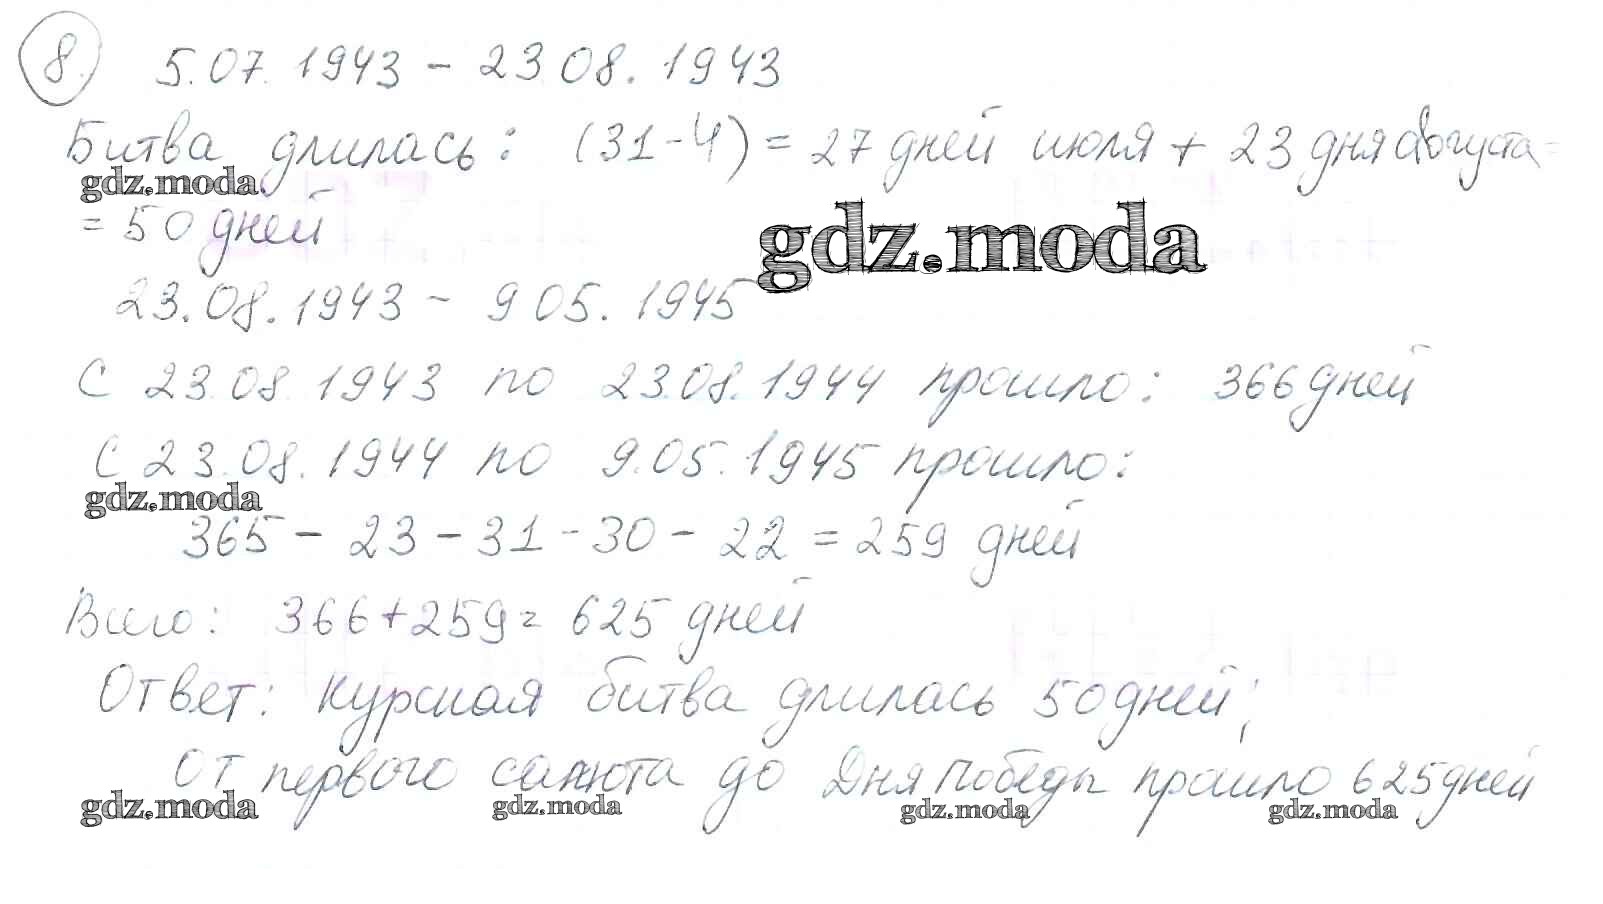 8. 5.07. 1943 - 23 08. 1943
Битва длилась: (31-4) = 27 дней июля + 23 дня августа =
gdz.moda
= 50 дней
gdz.moda
23.08.1943 - 9 05. 1945
С 23.08 1943 по 23.08.1944 прошло: 366 дней
С 23.08. 1944 по 9.05.1945 прошло:
gdz.moda
365 - 23 - 31 - 30 - 22 = 259 дней
Всего: 366+259= 625 дней
Ответ: Курская битва длилась 50 дней;
От первого салюта до Дня Победы прошло 625 дней
gdz.moda gdz.moda gdz.moda gdz.moda